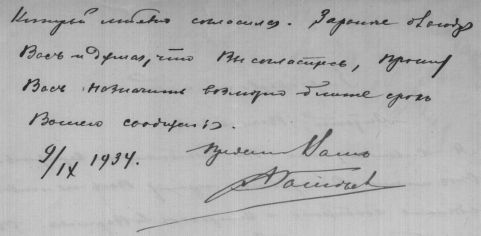 который любезно согласился. Заранее благодарю
Васъ и думая, что Вы согласитесь, прошу
Васъ назначить возможно ближе срокъ
Вашего сообщенія.
9/IX 1934. Преданный Вамъ